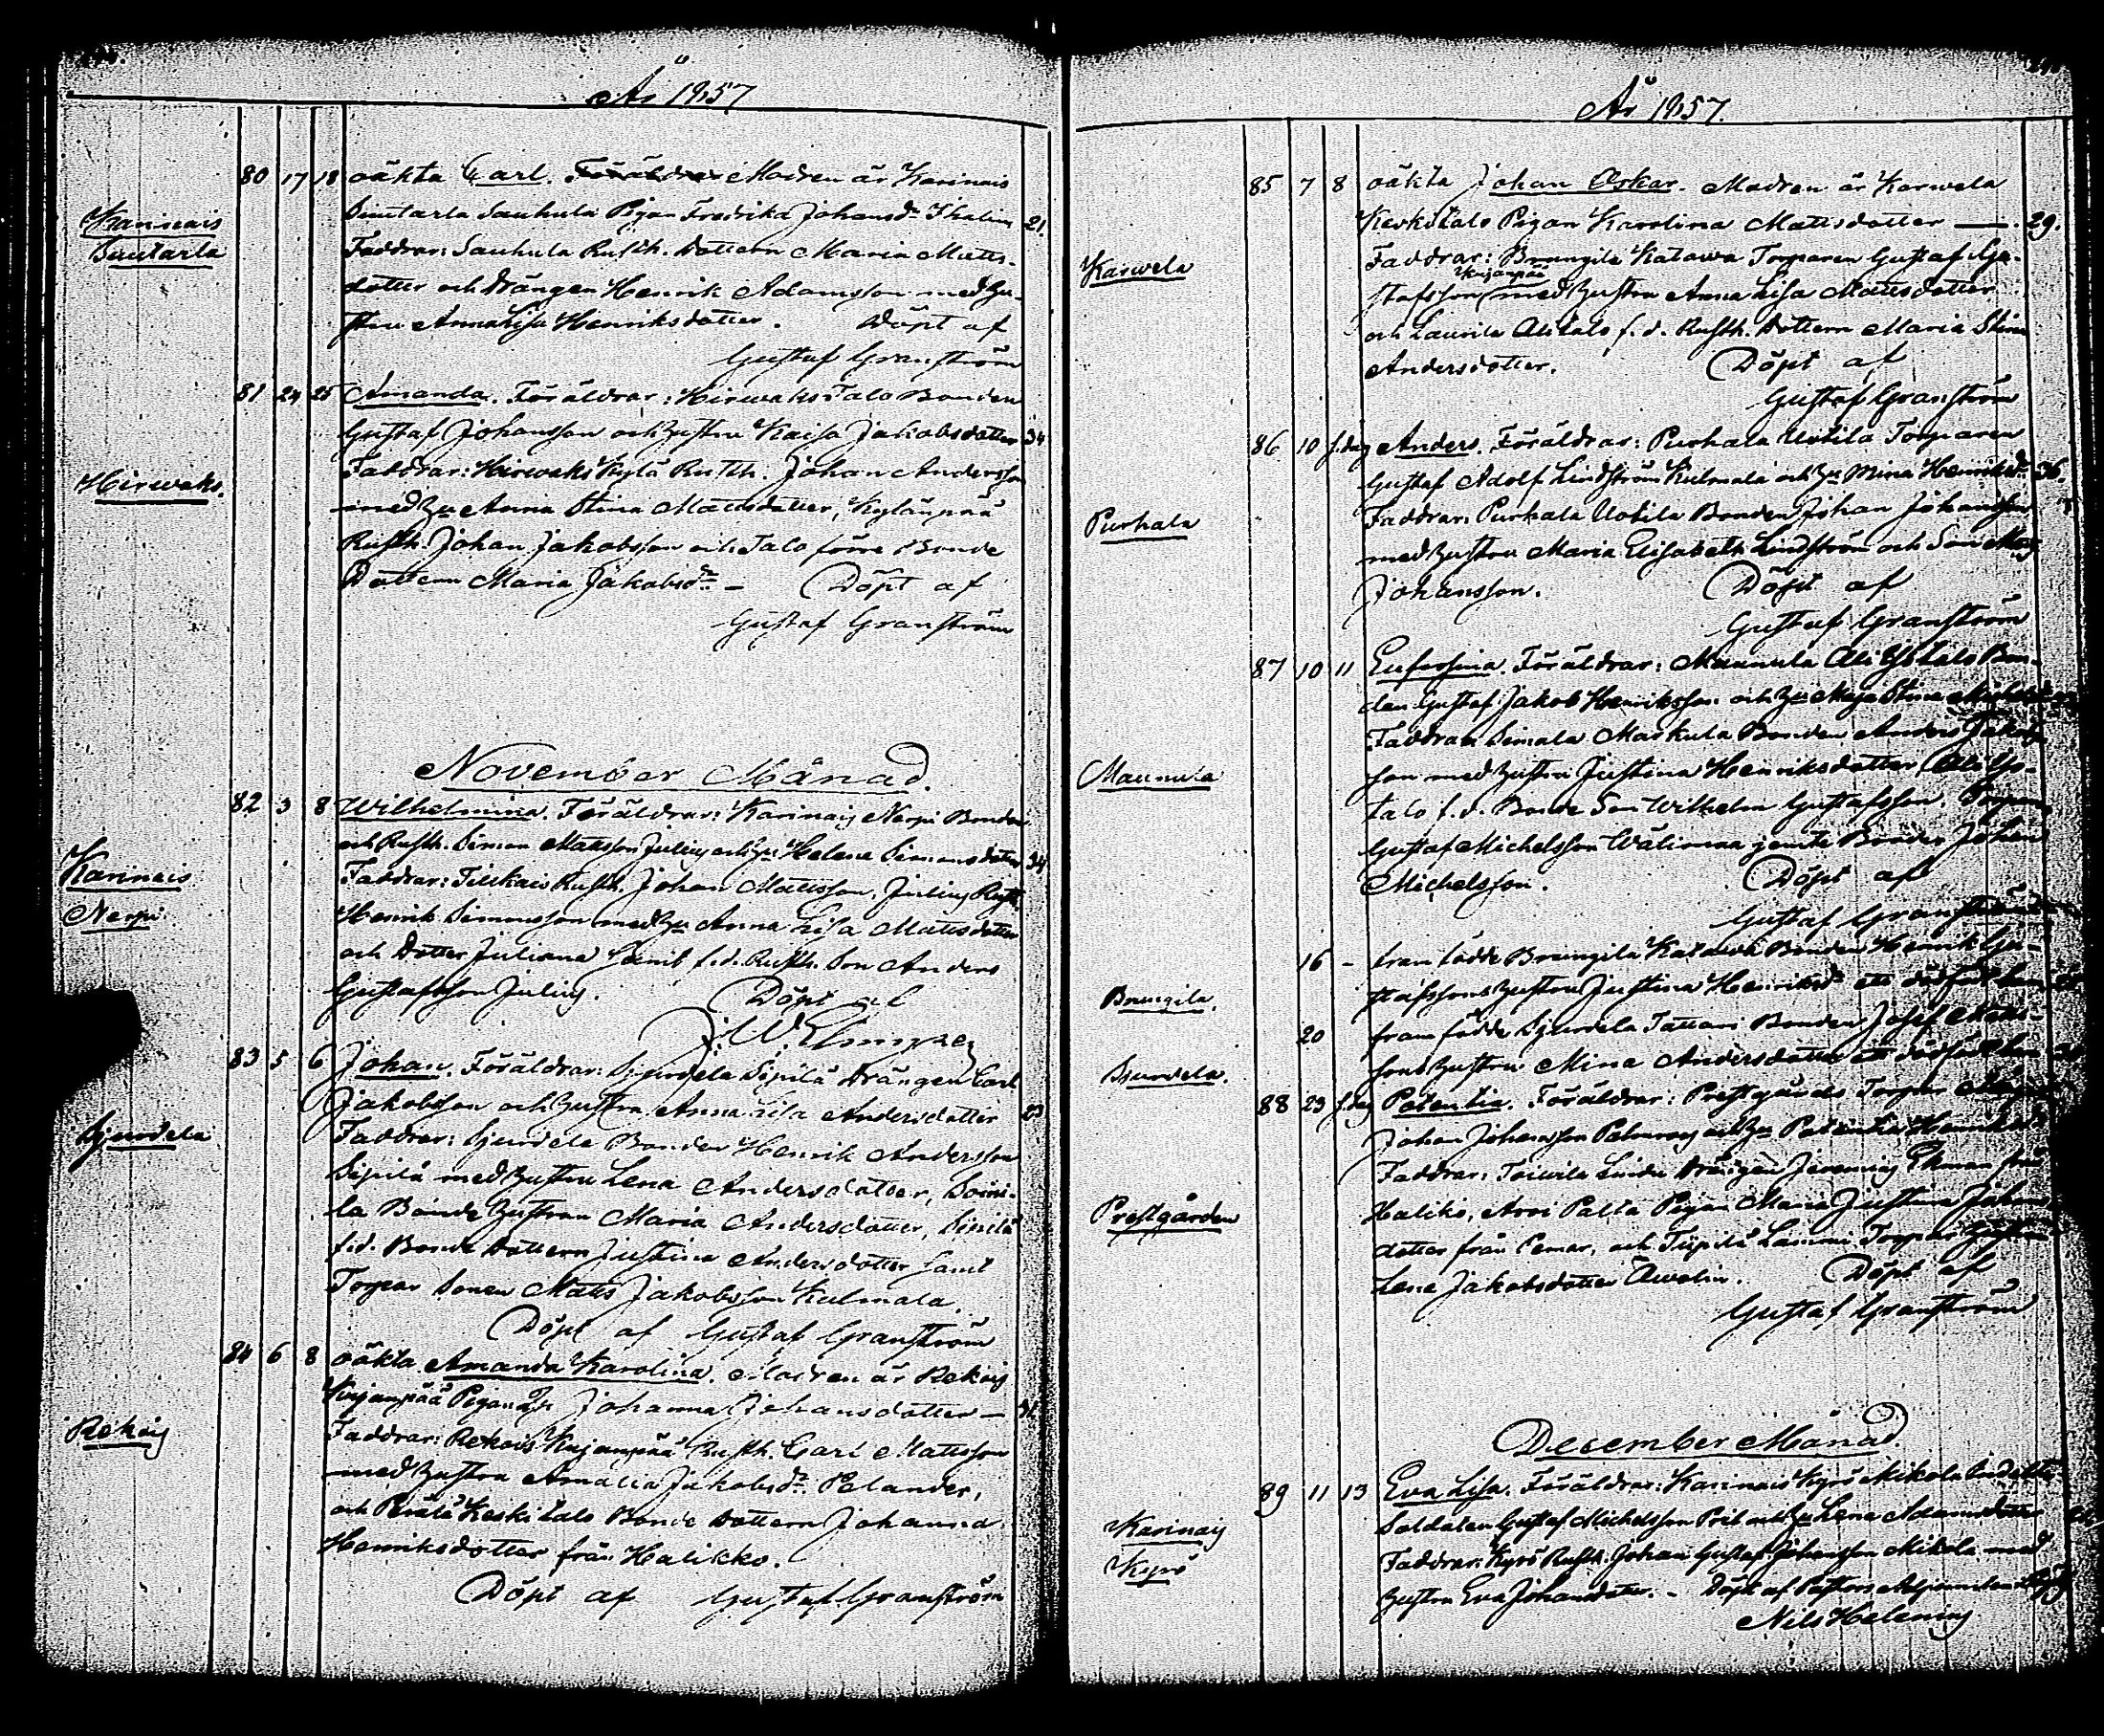 År 1857
Karinais
Suutarla
80 17 18 oäkta Carl. Föräldrar Modren är Karinais
Suutarla Sauhula Pigan Fredrika Johansdr Thalin 21.
Faddrar: Sauhula Rusth. dottern Maria Matts-
dotter och drängen Henrik Adamsson med Hu-
stru Anna Lisa Henriksdotter. Döpt af
Gustaf Granström
Hirwaks.
81 24 25 Amanda. Föräldrar: Hirwaks Talo Bonden
Gustaf Johansson och hustru Kaisa Jakobsdotter 34
Faddrar: Hirwaks Kylä Rusth. Johan Andersson
med hu Anna Stina Mattsdotter, Kylänpää
Rusth. Johan Jakobsson och Talo förre Bonde
Dottern Maria Jakobsdr – Döpt af
Gustaf Granström
November Månad.
Karinais
Nerpi
82 3 8 Wilhelmina. Föräldrar: Karinais Nerpi Bonden
och Rusth. Simon Mattsson Julius och hu Helena Simonsdotter 34
Faddrar: Rusth. Johan Mattsson, Julius Rusth.
Henrik Simonsson med hu Anna Lisa Mattsdotter
och Dotter Juliana samt f.d. Rusth. Son Anders
Gustafsson Julius. Döpt af
Sjurdela
83 5 6 Johan. Föräldrar: Sjurdela Sipilä drängen Carl
Jakobsson och hustru Anna Lisa Andersdotter 23
Faddrar: Sjurdela Bonden Henrik Andersson
Sipilä med hustru Lena Andersdotter, Soini-
la Bonde hustrun Maria Andersdotter, Sipilä
f.d. Bonde dottern Justina Andersdotter samt
Torpar Sonen Matts Jakobsson Kulmala.
Döpt af Gustaf Granström
Rekois
84 6 8 oäkta Amanda Karolina. Modren är Rekois
Kujanpää Pigan Johanna Johansdotter – 31.
Faddrar: Rekois Kujanpää Rusth. Carl Mattsson
med hustru Amalia Jakobsdr Palander,
och Perälä Keskitalo Bonde dottern Johanna
Henriksdotter från Halikko.
Döpt af Gustaf Granström
År 1857.
Karwela
85 7 8 oäkta Johan Oskar. Modren är Karwela
Keskitalo Pigan Karolina Mattsdotter — 29.
Faddrar: Brungila Katawa Torparen Gustaf Gu-
Kujanpää
stafsson med hustru Anna Lisa Mattsdotter
och Laurila Alitalo f.d. Rusth. Dottern Maria Stina
Andersdotter. Döpt af
Gustaf Granström
Purhala
86 10 s.dag Anders. Föräldrar: Purhala Uotila Torparen
Gustaf Adolf Lindström Kulmala och hu Mina Henriksdr 36.
Faddrar: Purhala Uotila Bonden Johan Johansson
med hustru Maria Elisabeth Lindström och Son
Johansson. Döpt af
Gustaf Granström
Maunula
87 10 11 Eufrosina. Föräldrar: Maunula Ali Yli talo Bon-
den Gustaf Jakob Henriksson och hu Maja Stina
Faddrar: Simala Markula Bonden Anders Jakobs-
son med hustru Justina Henriksdotter, Ali Yli-
talo f.d. Bonde Son Wilhelm Gustafsson, Torparen
Gustaf Michelsson Wälimaa jemte Bonden Johan
Michelsson. Döpt af
Gustaf Granström
Brungila.
16 – framfödde Brungila Katawa Bonden Henrik Gu-
stafssons hustru Justina Henriksdr ett dödfödt barn
Sjurdela.
20 framfödde Sjurdela Tattari Bonden Josef Matts-
sons hustru Mina Andersdotter ett dödfödt barn
Prestgården
88 23 s.dag Potentia. Föräldrar: Prestgårds Torpar
Johan Johansson Palmroos och hu Potentia
Faddrar: Toiwila Drängen Jeremias Ekman från
Haliko, Pigan Maria Justina Johans-
dotter från Pemar, och Tiipilä Lammi Torpar hustrun
Lena Jakobsdotter Awelin. Döpt af
Gustaf Granström
December Månad.
Karinais
Kyrö
89 11 13 Eva Lisa. Föräldrar: Karinais Kyrö Mikola Indelta
Soldaten Gustaf Michelsson Pril och hu Lena Adamsdotter
Faddrar: Kyrö Rusth. Johan Gustaf Johansson Mikola med
hustru Eva Johansdotter. – Döpt af Pastors Adjuncten
Nils Helenius